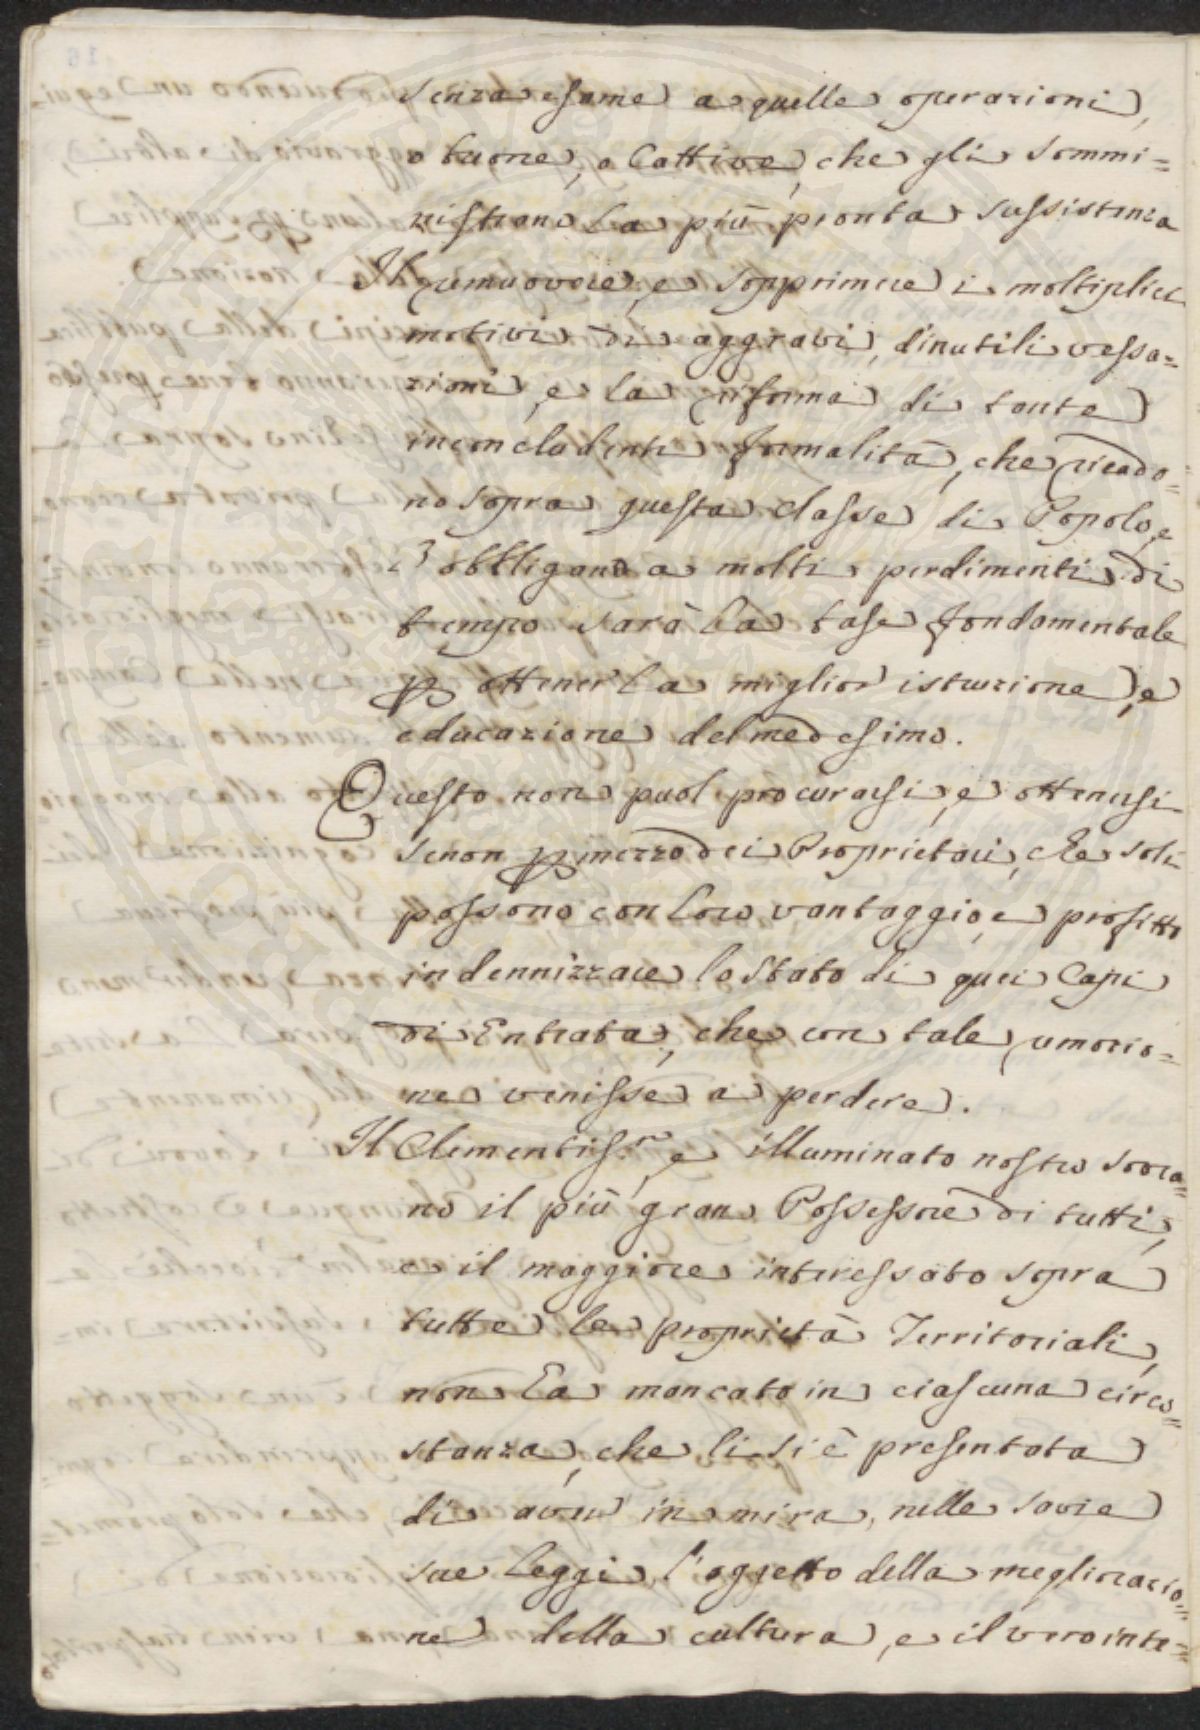 senza esame a quelle operazioni,
o buone, o Cattive, che gli sommi=
nistrano la più pronta sussistenza
Il rimuovere, e sopprimere i moltiplici
motivi di aggravi, d'inutili vessa=
zioni, e la riforma di tante
inconcludenti formalità, che ricado=
no sopra questa classe di Popolo, e
l'obbligano a molti perdimenti di
tempo sarà la base fondamentale
p ottener la miglior istruzione, e
educazione del medesimo.
Questo non puol procurarsi, e ottenersi
senon p mezzo dei Proprietari, che soli
possono con loro vantaggio, e profitto
indennizzare lo Stato di quei Capi
di Entrata, che con tale rimozio=
ne venisse a perdere.
Il Clementiss.º, e illuminato nostro Sovra=
no il più gran Possessore di tutti,
e il maggiore interessato sopra
tutte le proprietà Territoriali,
non ha mancato in ciascuna circo=
stanza, che li si è presentata
di aver in mira, nelle savie
sue Leggi, l'oggetto della megliorazio=
ne della cultura, e il vero inte=